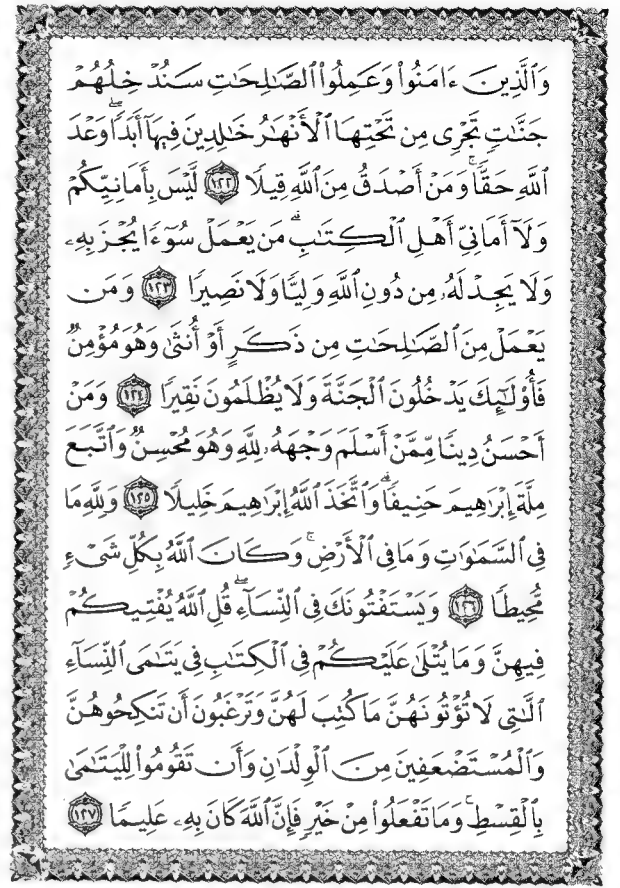 وَٱلَّذِينَ ءَامَنُوا۟ وَعَمِلُوا۟ ٱلصَّٰلِحَٰتِ سَنُدْخِلُهُمْ
جَنَّٰتٍ تَجْرِى مِن تَحْتِهَا ٱلْأَنْهَٰرُ خَٰلِدِينَ فِيهَآ أَبَدًا ۖ وَعْدَ
ٱللَّهِ حَقًّا ۚ وَمَنْ أَصْدَقُ مِنَ ٱللَّهِ قِيلًا ١٢٢ لَّيْسَ بِأَمَانِيِّكُمْ
وَلَآ أَمَانِىِّ أَهْلِ ٱلْكِتَٰبِ ۗ مَن يَعْمَلْ سُوٓءًا يُجْزَ بِهِۦ
وَلَا يَجِدْ لَهُۥ مِن دُونِ ٱللَّهِ وَلِيًّا وَلَا نَصِيرًا ١٢٣ وَمَن
يَعْمَلْ مِنَ ٱلصَّٰلِحَٰتِ مِن ذَكَرٍ أَوْ أُنثَىٰ وَهُوَ مُؤْمِنٌ
فَأُو۟لَٰٓئِكَ يَدْخُلُونَ ٱلْجَنَّةَ وَلَا يُظْلَمُونَ نَقِيرًا ١٢٤ وَمَنْ
أَحْسَنُ دِينًا مِّمَّنْ أَسْلَمَ وَجْهَهُۥ لِلَّهِ وَهُوَ مُحْسِنٌ وَٱتَّبَعَ
مِلَّةَ إِبْرَٰهِيمَ حَنِيفًا ۗ وَٱتَّخَذَ ٱللَّهُ إِبْرَٰهِيمَ خَلِيلًا ١٢٥ وَلِلَّهِ مَا
فِى ٱلسَّمَٰوَٰتِ وَمَا فِى ٱلْأَرْضِ ۚ وَكَانَ ٱللَّهُ بِكُلِّ شَىْءٍ
مُّحِيطًا ١٢٦ وَيَسْتَفْتُونَكَ فِى ٱلنِّسَآءِ ۖ قُلِ ٱللَّهُ يُفْتِيكُمْ
فِيهِنَّ وَمَا يُتْلَىٰ عَلَيْكُمْ فِى ٱلْكِتَٰبِ فِى يَتَٰمَى ٱلنِّسَآءِ
ٱلَّٰتِى لَا تُؤْتُونَهُنَّ مَا كُتِبَ لَهُنَّ وَتَرْغَبُونَ أَن تَنكِحُوهُنَّ
وَٱلْمُسْتَضْعَفِينَ مِنَ ٱلْوِلْدَٰنِ وَأَن تَقُومُوا۟ لِلْيَتَٰمَىٰ
بِٱلْقِسْطِ ۚ وَمَا تَفْعَلُوا۟ مِنْ خَيْرٍ فَإِنَّ ٱللَّهَ كَانَ بِهِۦ عَلِيمًا ١٢٧